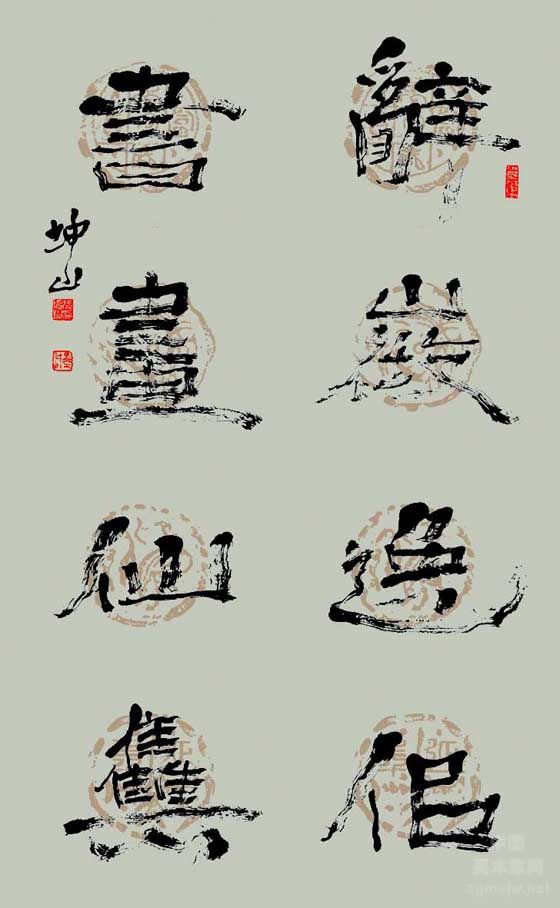 辭巖逸侶
書畫仙雧
坤山
中国
美术家网
zgmsjw.net